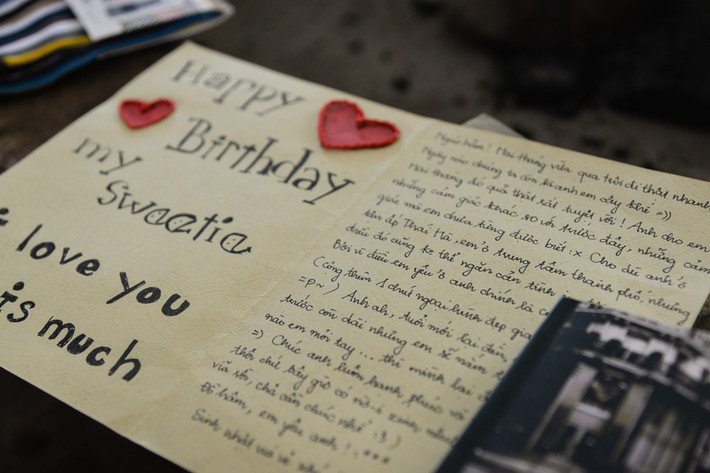 Happy
Birthday
my
Sweetie
I love you
is much
Hai tháng vừa qua trôi đi thật nhanh
Ngày nào chúng ta ôm khanh em đây khé =))
Hai tháng đó quả thật rất tuyệt vời! Anh cho em
những cảm giác khác so với trước đây, những cảm
giác mà em chưa từng được biết :x Cho dù anh ở
khu ấp Thái Hà, em ở trung tâm thành phố, nhưng
điều đó cũng ko thể ngăn cản tình
Bởi vì điều em yêu ở anh chính là
(Cộng thêm 1 chút ngoại hình đẹp
=p~) Anh ah, tuổi mới lại đến
trước còn dài nhưng em
nào em mới tay ... thì mình lại
=) Chúc anh luôn hạnh phúc và
thôi chứ bây giờ có
vừa rồi, chả cần chúc nhé :3)
em yêu anh!
Sinh nhật vui vẻ